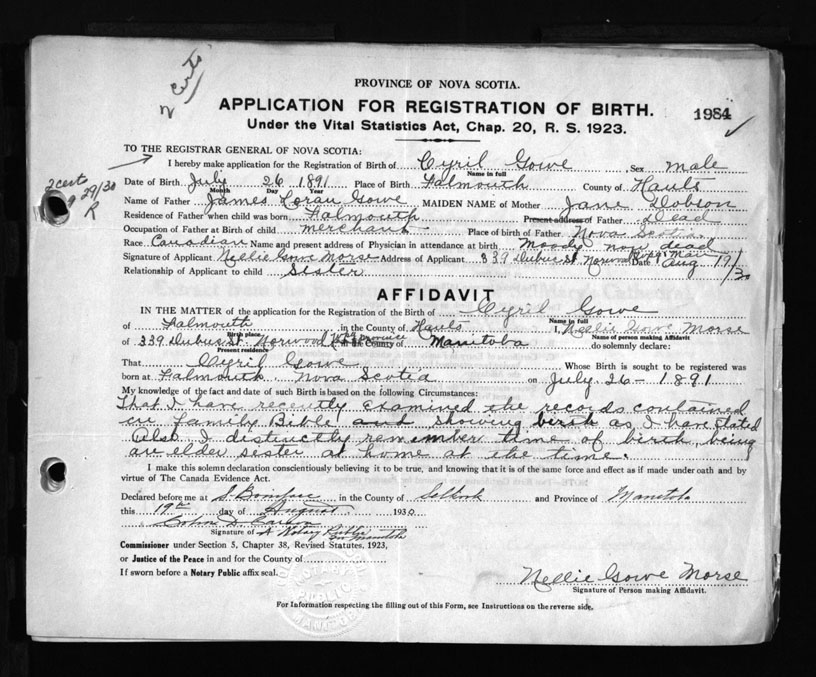 2 Certs
PROVINCE OF NOVA SCOTIA.
APPLICATION FOR REGISTRATION OF BIRTH.
1984
Under the Vital Statistics Act, Chap. 20, R. S. 1923.
TO THE REGISTRAR GENERAL OF NOVA SCOTIA:
2 certs
29/30
R
I hereby make application for the Registration of Birth of Cyril Gowe Sex male
Name in full
Date of Birth July 26 1891 Place of Birth Falmouth County of Hants
Month Day Year
Name of Father James Loran Gowe MAIDEN NAME of Mother Jane Dobson
Residence of Father when child was born Falmouth Present address of Father Dead
Occupation of Father at Birth of child merchant Place of birth of Father Nova Scotia
Race Canadian Name and present address of Physician in attendance at birth Moody now dead
Signature of Applicant Nellie Gowe Morse Address of Applicant 339 Dubuc St. Norwood Date Aug 19/30
Relationship of Applicant to child Sister
AFFIDAVIT
IN THE MATTER of the application for the Registration of the Birth of Cyril Gowe
Name in full
of Falmouth in the County of Hants I, Nellie Gowe Morse
Birth place Name of person making Affidavit
of 339 Dubuc St. Norwood in the County of Province Manitoba do solemnly declare:
Present residence
That Cyril Gowe Whose Birth is sought to be registered was
born at Falmouth Nova Scotia on July 26 - 1891
My knowledge of the fact and date of such Birth is based on the following Circumstances:
That I have recently examined the records contained
in family Bible and showing birth as I have stated
Also I distinctly remember time of birth, being
an elder sister at home at the time.
I make this solemn declaration conscientiously believing it to be true, and knowing that it is of the same force and effect as if made under oath and by
virtue of The Canada Evidence Act.
Declared before me at St Boniface in the County of Selkirk and Province of Manitoba
this 19th day of August 1930
Signature of A Notary Public
for Manitoba
Commissioner under Section 5, Chapter 38, Revised Statutes, 1923,
or Justice of the Peace in and for the County of
If sworn before a Notary Public affix seal.
Nellie Gowe Morse
Signature of Person making Affidavit.
For Information respecting the filling out of this Form, see Instructions on the reverse side.